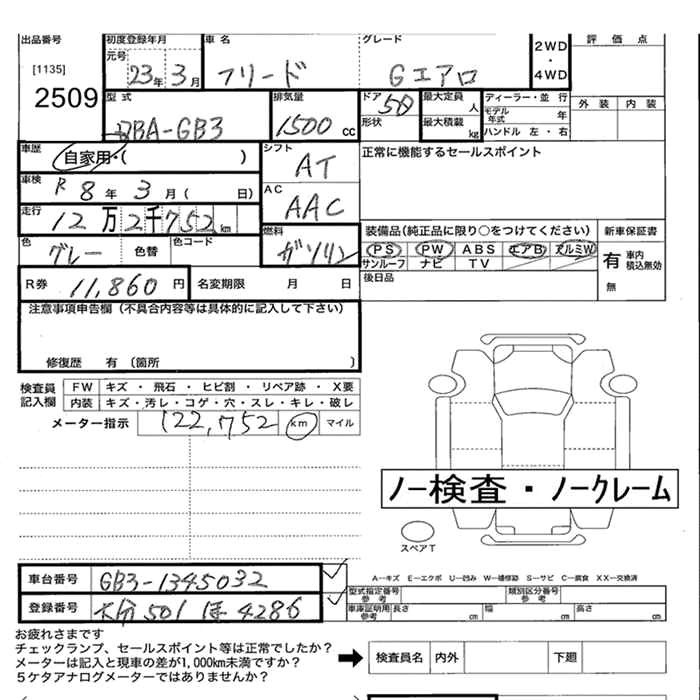 出品番号 初度登録年月 車名 グレード 評価点
[1135] 元号 23年3月 フリード Gエアロ 2WD・4WD
2509 型式 DBA-GB3 排気量 1500cc ドア 5D 形状 最大定員 人 最大積載 kg ディーラー・並行 モデル年式 年 ハンドル 左・右 外装 内装
車歴 自家用・( ) シフト AT 正常に機能するセールスポイント
車検 R8年3月( 日) AC AAC
走行 12万2千752km 燃料 ガソリン 装備品(純正品に限り○をつけてください) 新車保証書
色 グレー 色替 色コード PS PW ABS エアB アルミW 有 車内積込無効
サンルーフ ナビ TV 無
R券 11,860円 名変期限 月 日 後日品
注意事項申告欄(不具合内容等は具体的に記入して下さい)
修復歴 有(箇所 )
検査員記入欄 FW キズ・飛石・ヒビ割・リペア跡・X要
内装 キズ・汚レ・コゲ・穴・スレ・キレ・破レ
メーター指示 122,752 km マイル
ノー検査・ノークレーム
スペアT
車台番号 GB3-1345032 A-キズ E-エクボ U-凹み W-補修跡 S-サビ C-腐食 XX-交換済
型式指定番号 参考 類別区分番号 参考
登録番号 大分501 4286 車庫証明用 参考 長さ cm 幅 cm 高さ cm
お疲れさまです
チェックランプ、セールスポイント等は正常でしたか?
メーターは記入と現車の差が1,000km未満ですか? 検査員名 内外 下廻
5ケタアナログメーターではありませんか?